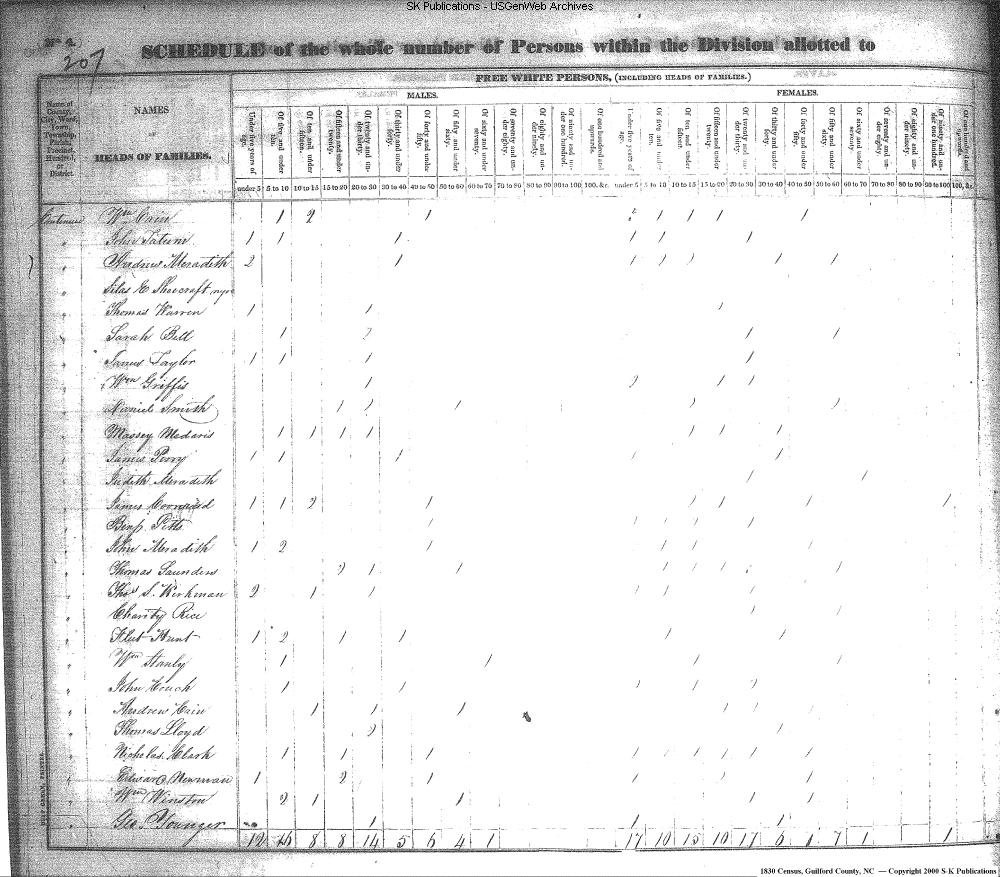 SK Publications - USGenWeb Archives
No 2.
207
SCHEDULE of the whole number of Persons within the Division allotted to
FREE WHITE PERSONS, (INCLUDING HEADS OF FAMILIES.)
Name of County, City, Ward, Town, Township, Parish, Precinct, Hundred, or District.
NAMES
HEADS OF FAMILIES.
MALES. FEMALES.
Under five years of age. Of five and under ten. Of ten and under fifteen. Of fifteen and under twenty. Of twenty and under thirty. Of thirty and under forty. Of forty and under fifty. Of fifty and under sixty. Of sixty and under seventy. Of seventy and under eighty. Of eighty and under ninety. Of ninety and under one hundred. Of one hundred and upwards. Under five years of age. Of five and under ten. Of ten and under fifteen. Of fifteen and under twenty. Of twenty and under thirty. Of thirty and under forty. Of forty and under fifty. Of fifty and under sixty. Of sixty and under seventy. Of seventy and under eighty. Of eighty and under ninety. Of ninety and under one hundred. Of one hundred and upwards.
under 5 5 to 10 10 to 15 15 to 20 20 to 30 30 to 40 40 to 50 50 to 60 60 to 70 70 to 80 80 to 90 90 to 100 100, &c. under 5 5 to 10 10 to 15 15 to 20 20 to 30 30 to 40 40 to 50 50 to 60 60 to 70 70 to 80 80 to 90 90 to 100 100, &c.
Wm Cain 1 2 1 2 1 1 1 1
John Tatum 1 1 1 1 1 1
Andrew Meradith 2 1 1 1 1 1 1
Silas E
Thomas Warren 1 1 1
Sarah Bell 1 2 1 1
James Taylor 1 1 1 1
Wm Griffis 1 2 1 1
Daniel Smith 1 2 1 1 1
Massey Medaris 1 1 1 1 1 1 1
James Perry 1 1 1 1 1
Judith Meradith 1 1
James 1 1 2 1 1 1 1 1
Benj. Pitts 1 1 1 1 1
John Meradith 1 2 1 1 1 1
Thomas Saunders 2 1 1 1 1 1 1
Thos S. Kirkman 2 1 1 1 1 1
Charity Rice 1 1
Hunt 1 2 1 1 1 1
Wm Stanly 1 1 1 1
John Couch 1 1 1 1 1
Andrew Cain 1 1 1 1 1 1
Thomas Lloyd 2 1
Nicholas Clark 1 1 1 1 1 1 1 1 1
Edward Newman 1 2 1 1 1 1
Wm Winston 2 1 1 1 1
Geo. Younger 1 1 1
12 16 8 8 14 5 6 4 1 17 10 15 10 17 6 7 1 1
1830 Census, Guilford County, NC — Copyright 2000 S-K Publications